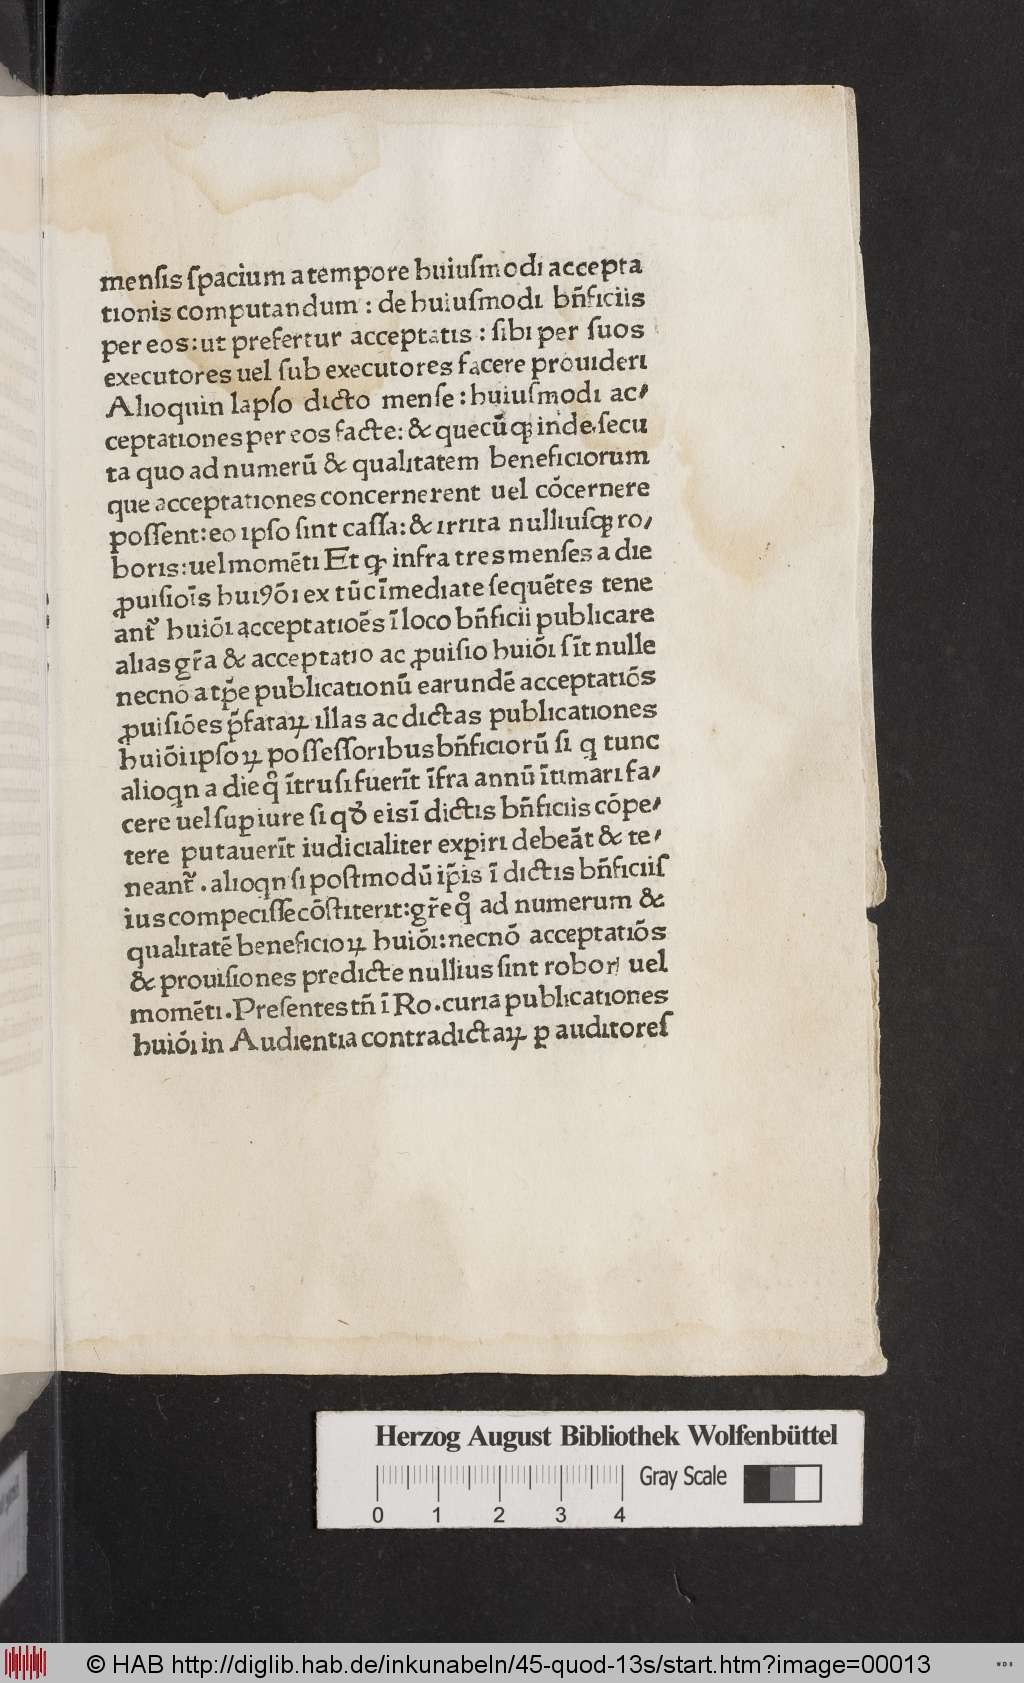 mensis ſpacium a tempore huiuſmodi accepta
tionis computandum : de huiuſmodi bn̄ficiis
per eos : ut prefertur acceptatis : ſibi per ſuos
executores uel ſub executores facere prouideri
Alioquin lapſo dicto menſe : huiuſmodi ac⸗
ceptationes per eos facte : & quecūqꝫ inde ſecu
ta quo ad numerū & qualitatem beneficiorum
que acceptationes concernerent uel cōcernere
poſſent : eo ipſo ſint caſſa : & irrita nulliuſqꝫ ro⸗
boris : uel momēti Et ꝙ infra tres menſes a die
ꝓuiſiōis huiꝰōi ex tūc īmediate ſequētes tene
ant᷑ huiōi acceptatiōes ī loco bn̄ficii publicare
alias gr̄a & acceptatio ac ꝓuiſio huiōi ſīt nulle
necnō a tp̄e publicationū earundē acceptatiōs
ꝓuiſiōes p̄fataꝝ illas ac dictas publicationes
huiōi ipſoꝝ poſſeſſoribus bn̄ficiorū ſi q̄ tunc
alioqn a die qͦ ītruſi fuerīt īfra annū ītimari fa⸗
cere uel ſup iure ſi qđ eis ī dictis bn̄ficiis cōpe⸗
tere putauerīt iudicialiter expiri debeāt & te⸗
neant᷑ . alioqn ſi poſtmodū ip̄is ī dictis bn̄ficiiſ
ius compeciſſe cōſtiterit : gr̄e qͦ ad numerum &
qualitatē beneficioꝝ huiōi : necnō acceptatiōs
& prouiſiones predicte nullius ſint robor uel
momēti . Preſentes tn̄ ī Ro . curia publicationes
huiōi in Audientia contradictaꝝ ꝑ auditoreſ
Herzog August Bibliothek Wolfenbüttel
Gray Scale
0 1 2 3 4
© HAB http://diglib.hab.de/inkunabeln/45-quod-13s/start.htm?image=00013